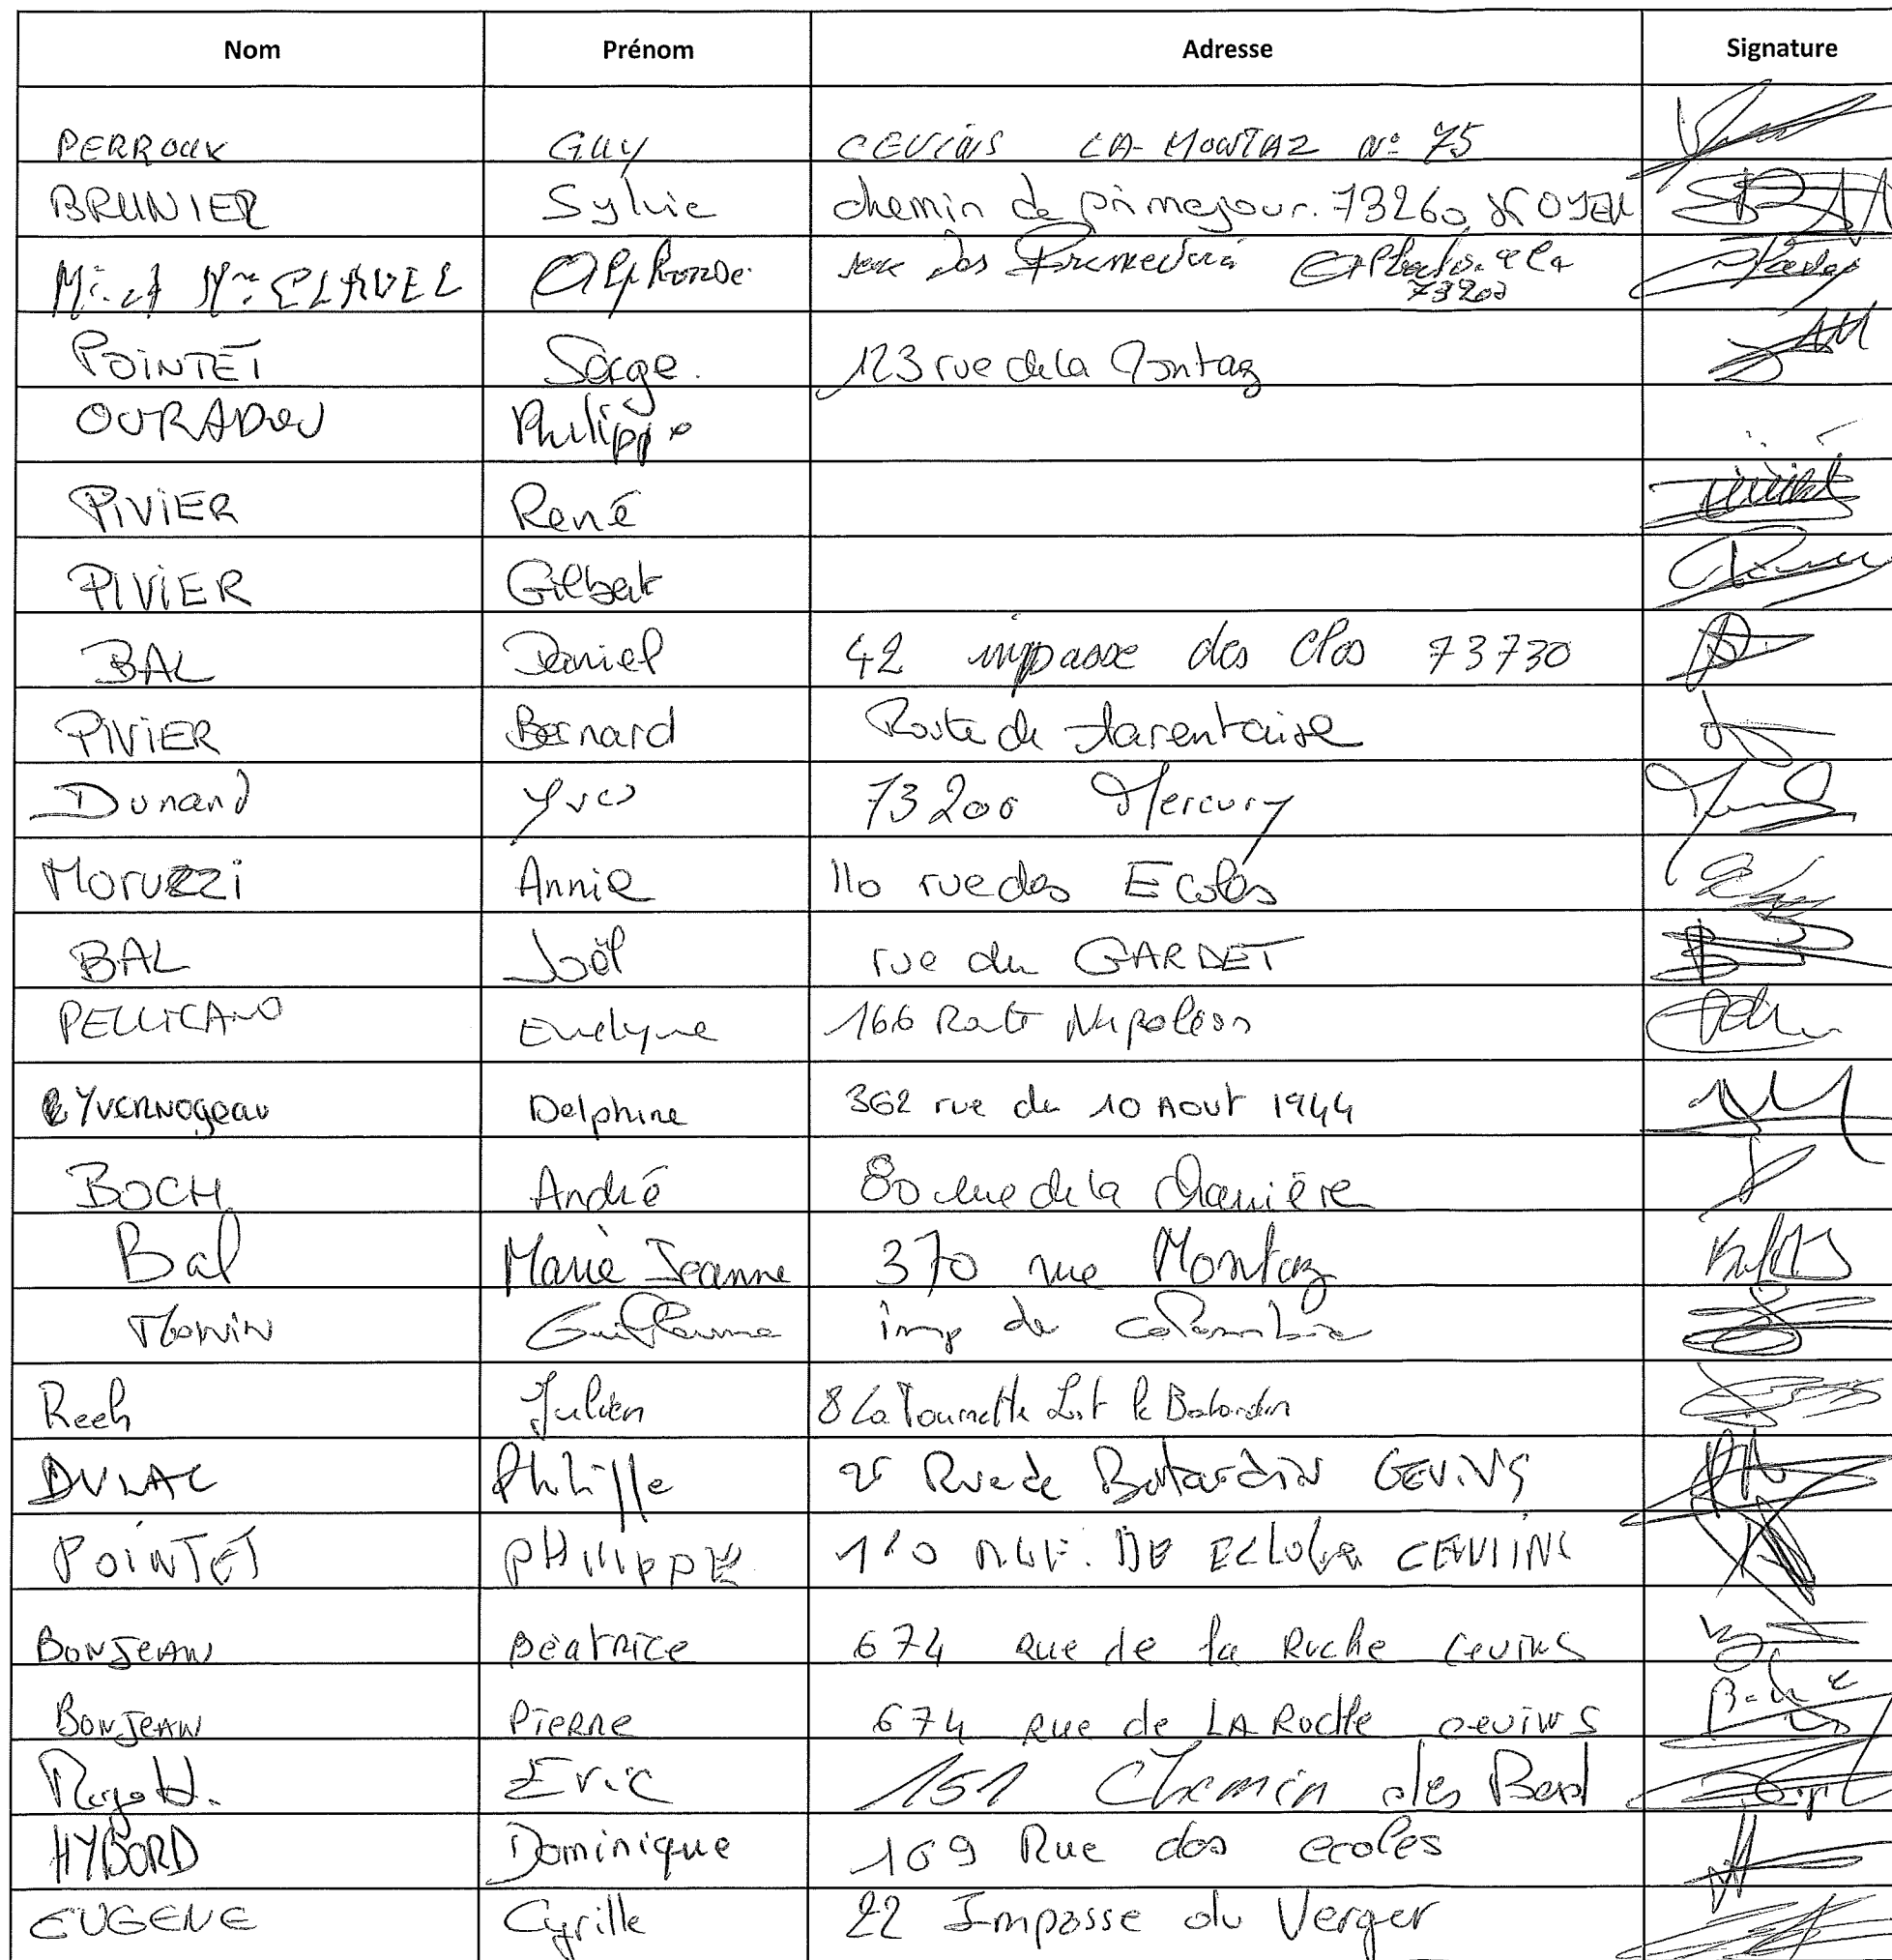 Nom Prénom Adresse Signature
PERROUX Guy CEVINS LA-MONTAZ n° 75
BRUNIER Sylvie chemin de primejour. 73260
Mr. et Mme CLAVEL Alphonse rue des 73200
POINTET Serge. 123 rue de la Montaz
OURADOU Philippe
PIVIER René
PIVIER Gilbert
BAL Daniel 42 impasse des Clos 73730
PIVIER Bernard Route de tarentaise
Dunand Yves 73200 Mercury
Moruzzi Annie 110 rue des Ecoles
BAL Joël rue du GARDET
PELLICANO Evelyne 166 Route Napoléon
Yvernogeau Delphine 362 rue du 10 Aout 1944
BOCH André 80 rue de la
Bal Marie Jeanne 370 rue Montaz
Guillaume imp de
Reeh Julien 8 La Tournette Lot le
DULAC Philippe Rue de CEVINS
POINTET PHILIPPE DE
BONJEAN Béatrice 674 Rue de la Roche Cevins
BONJEAN Pierre 674 Rue de LA Roche cevins
Eric 151 Chemin des
HYBORD Dominique 169 Rue des ecoles
EUGENE Cyrille 22 Impasse du Verger